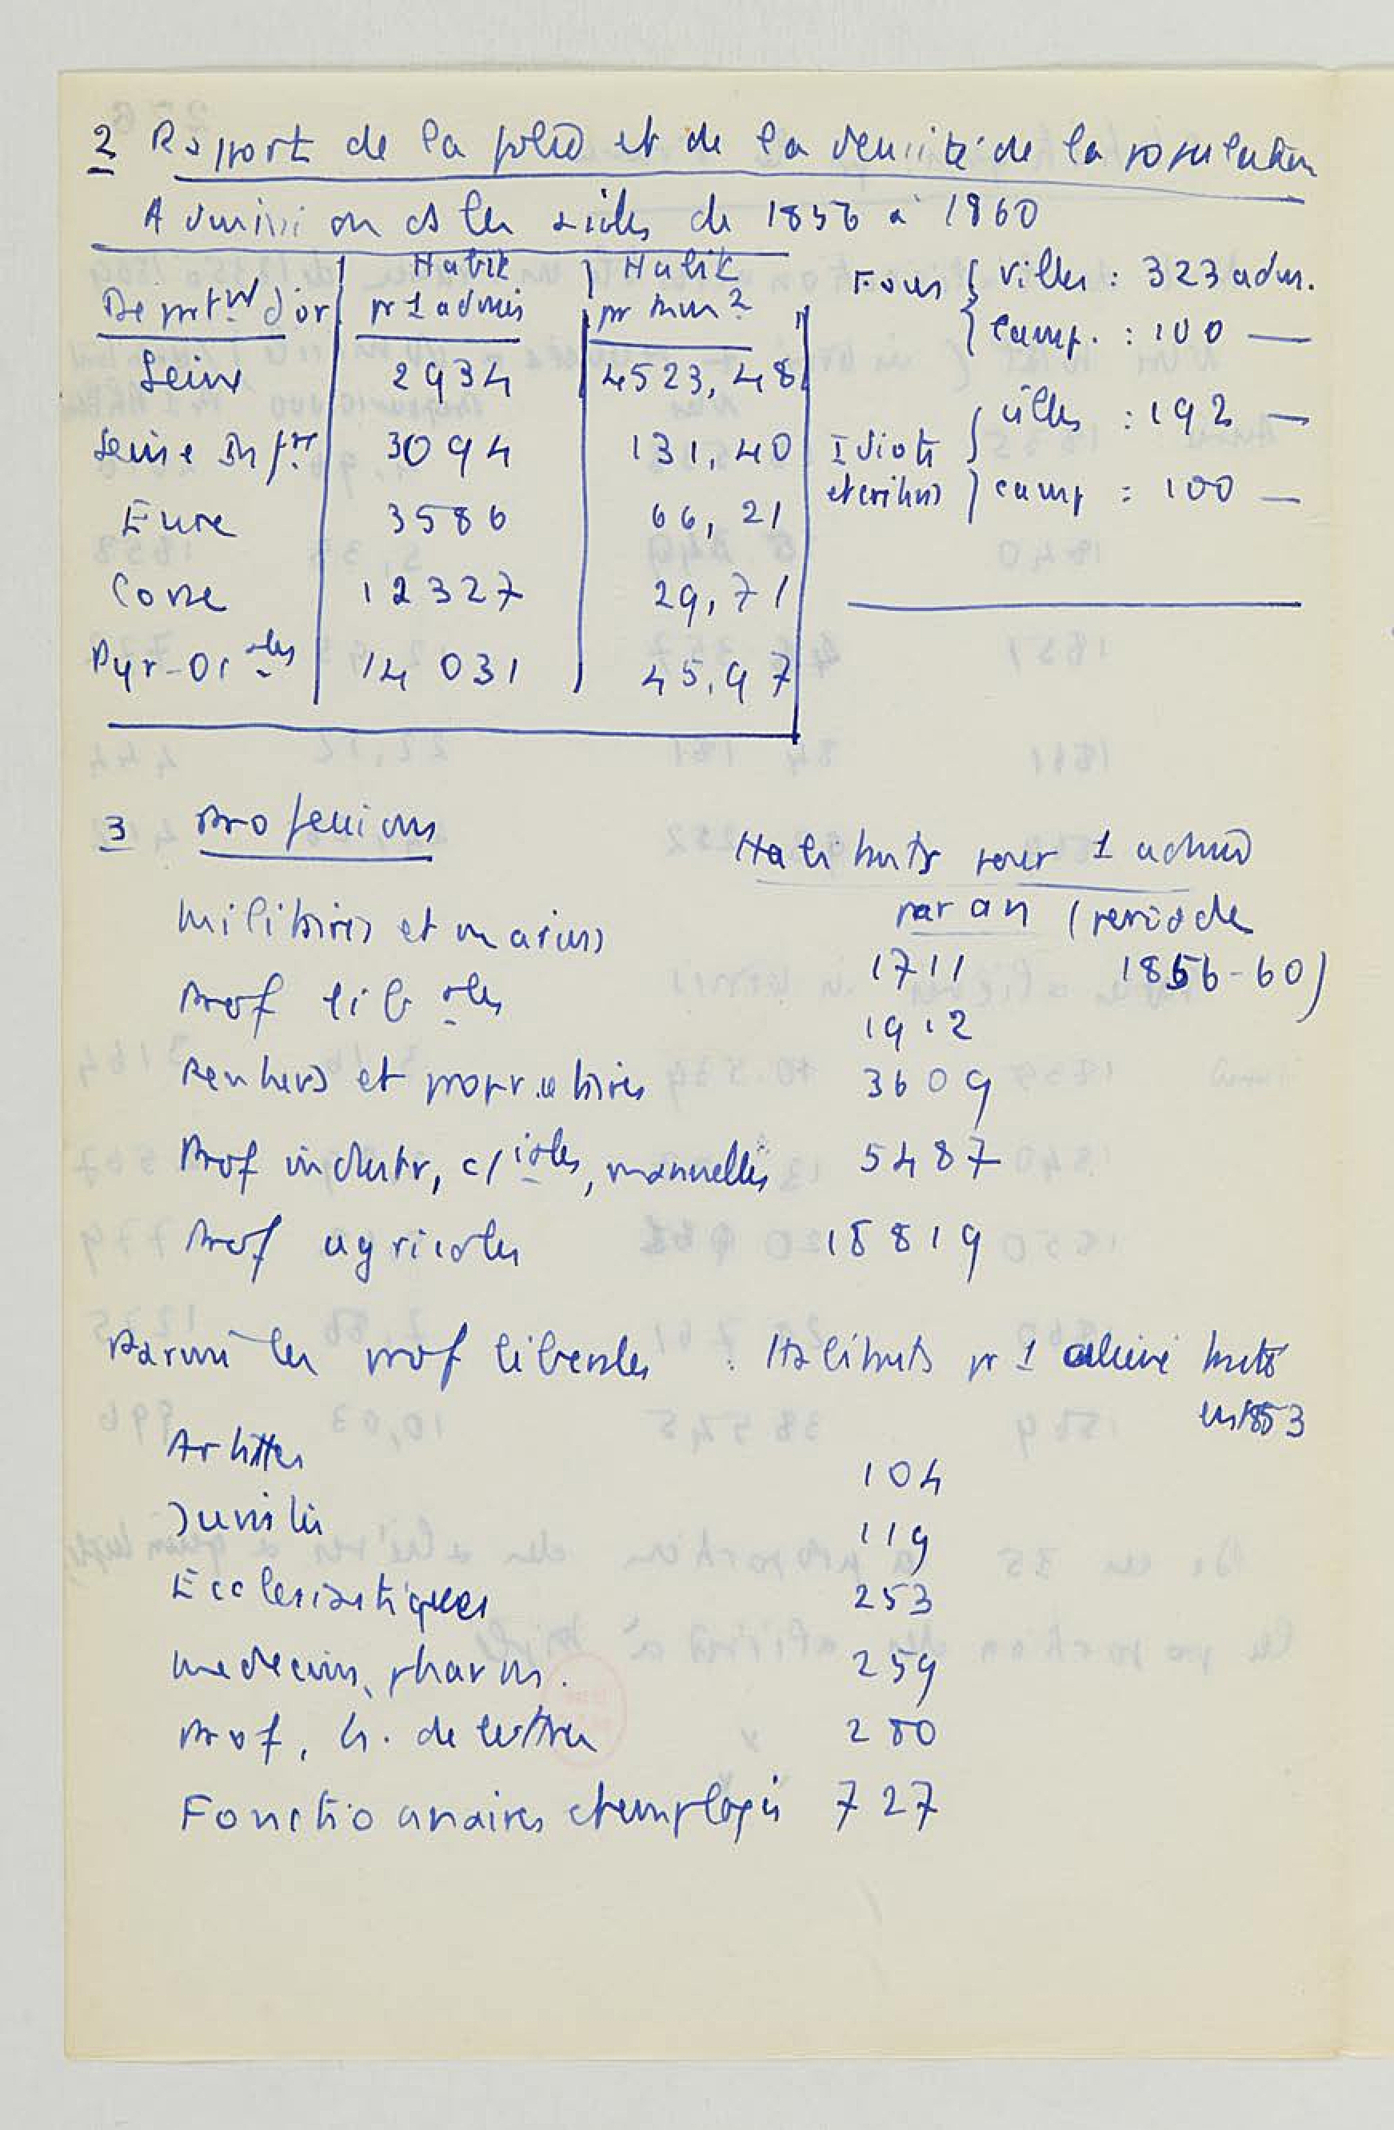 2 Rapport de la folie et de la densité de la population
Admission ds les asiles de 1856 à 1860
Departmt d'or
Habit pr 1 admis
Habit pr kmm 2
Seine 2934 4523,48
Seine Infre 3094 131,40
Eure 3586 66,21
Corse 12327 29,71
Pyr-Orales 14031 45,97
Fous { villes : 323 adm.
camp. : 100 —
Idiots et crétins { villes : 192 —
camp : 100 —
3 Professions
Habitants pour 1 admis
par an (periode
1856-60)
militaires et marins 1711
Prof libales 1912
Rentiers et propriétaires 3609
Prof industr, c/iales, manuelles 5487
Prof agricoles 18819
Parmi les prof liberales : Habitants pr 1 aliéné traité
en 1853
Artistes 104
Juristes 119
Ecclesiastiques 253
medecins, pharm. 259
Prof, h. de lettres 280
Fonctionnaires et employés 727